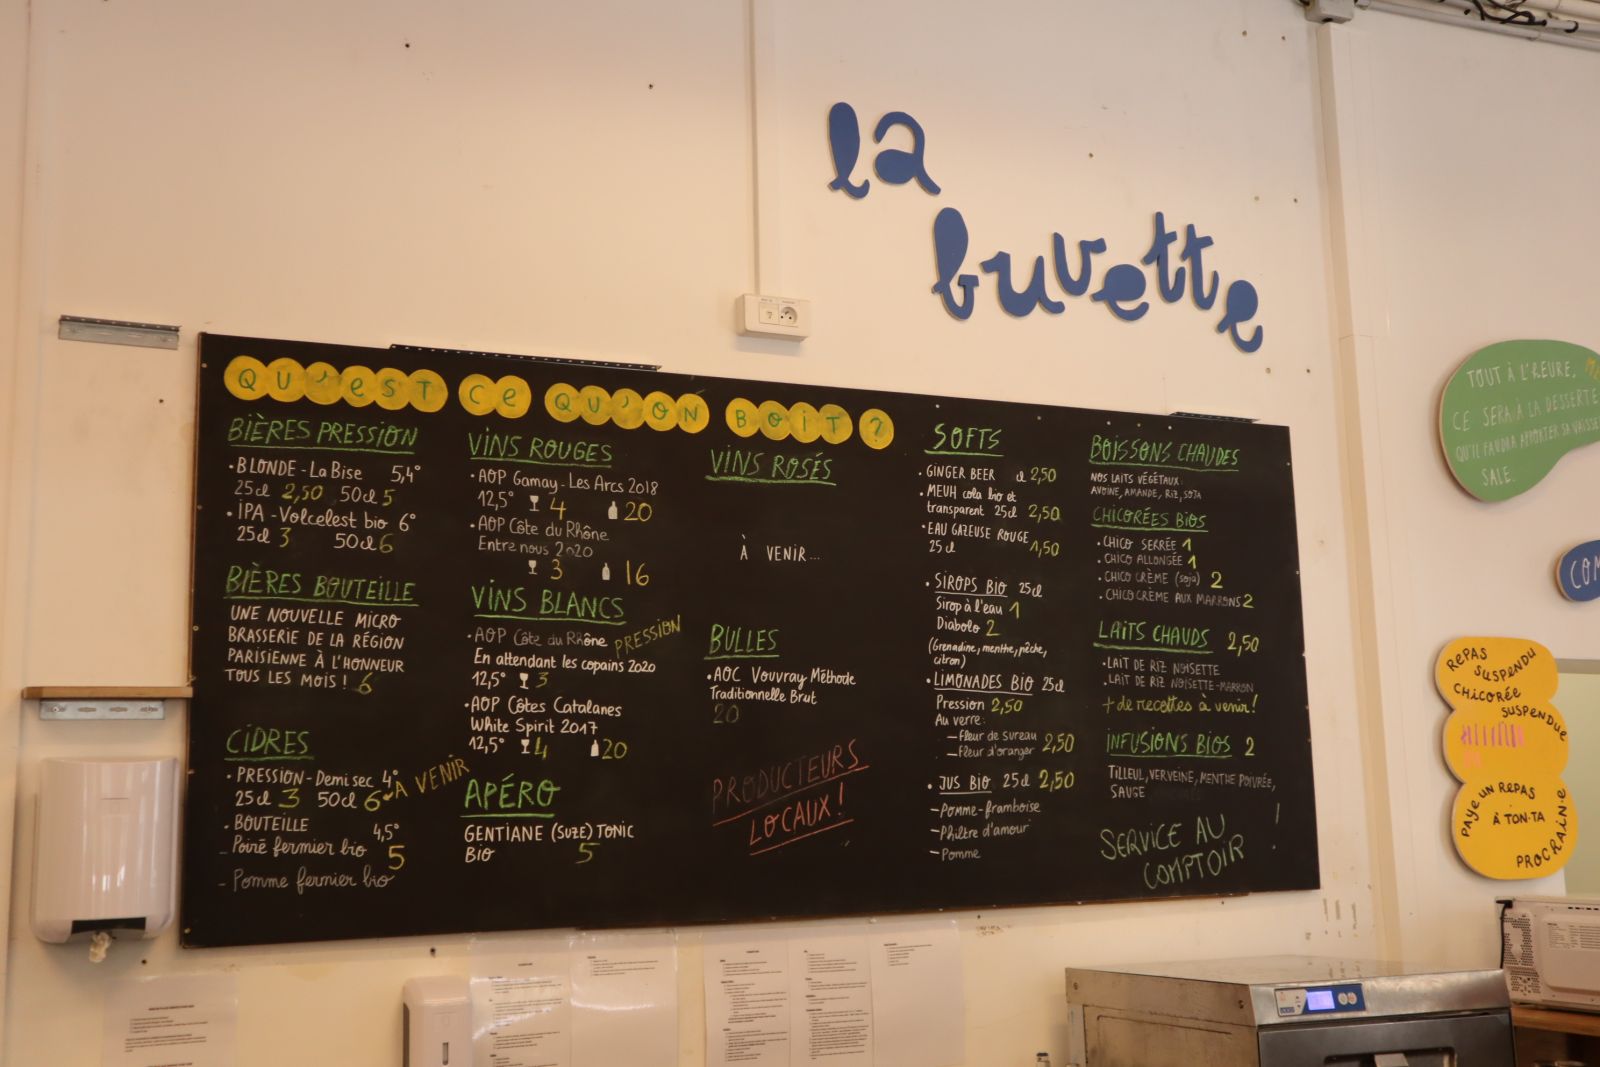 la
buvette
QU'EST CE QU'ON BOIT ?
BIÈRES PRESSION
• BLONDE - La Bise 5,4°
25cl 2,50 50cl 5
• IPA - Volcelest bio 6°
25cl 3 50cl 6
BIÈRES BOUTEILLE
UNE NOUVELLE MICRO
BRASSERIE DE LA RÉGION
PARISIENNE À L'HONNEUR
TOUS LES MOIS ! 6
CIDRES
• PRESSION - Demi sec 4°
25cl 3 50cl 6 À VENIR
• BOUTEILLE 4,5°
- Poiré fermier bio 5
- Pomme fermier bio
VINS ROUGES
• AOP Gamay - Les Arcs 2018
12,5° 4 20
• AOP Côte du Rhône
Entre nous 2020
3 16
VINS BLANCS
• AOP Côte du Rhône PRESSION
En attendant les copains 2020
12,5° 3
• AOP Côtes Catalanes
White Spirit 2017
12,5° 4 20
APÉRO
GENTIANE (SUZE) TONIC
BIO 5
VINS ROSÉS
À VENIR...
BULLES
• AOC Vouvray Méthode
Traditionnelle Brut
20
PRODUCTEURS
LOCAUX !
SOFTS
• GINGER BEER cl 2,50
• MEUH cola bio et
transparent 25cl 2,50
• EAU GAZEUSE ROUGE
25cl 1,50
• SIROPS BIO 25cl
Sirop à l'eau 1
Diabolo 2
(Grenadine, menthe, pêche,
citron)
• LIMONADES BIO 25cl
Pression 2,50
Au verre:
- Fleur de sureau 2,50
- Fleur d'oranger
• JUS BIO 25cl 2,50
- Pomme-framboise
- Philtre d'amour
- Pomme
BOISSONS CHAUDES
NOS LAITS VÉGÉTAUX:
AVOINE, AMANDE, RIZ, SOJA
CHICORÉES BIOS
• CHICO SERRÉE 1
• CHICO ALLONGÉE 1
• CHICO CRÈME (soja) 2
• CHICO CRÈME AUX MARRONS 2
LAITS CHAUDS 2,50
• LAIT DE RIZ NOISETTE
• LAIT DE RIZ NOISETTE-MARRON
+ de recettes à venir !
INFUSIONS BIOS 2
TILLEUL, VERVEINE, MENTHE POIVRÉE,
SAUGE
SERVICE AU
COMPTOIR !
TOUT À L'HEURE,
CE SERA À LA DESSERTE
QU'IL FAUDRA APPORTER SA VAISSE
SALE.
COM
REPAS
SUSPENDU
CHICORÉE
SUSPENDUE
PAYE UN REPAS
À TON·TA
PROCHAIN·E